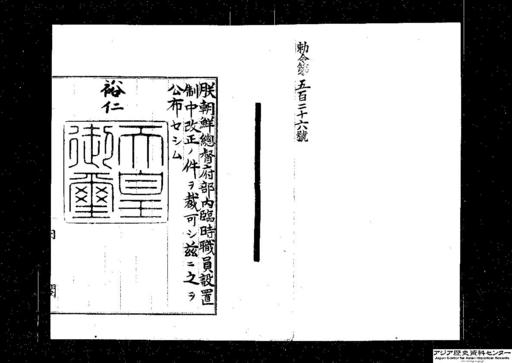 勅令第五百二十六號
朕朝鮮總督府部內臨時職員設置
制中改正ノ件ヲ裁可シ茲ニ之ヲ
公布セシム
裕仁
天皇
御璽
內閣
アジア歴史資料センター
Japan Center for Asian Historical Records